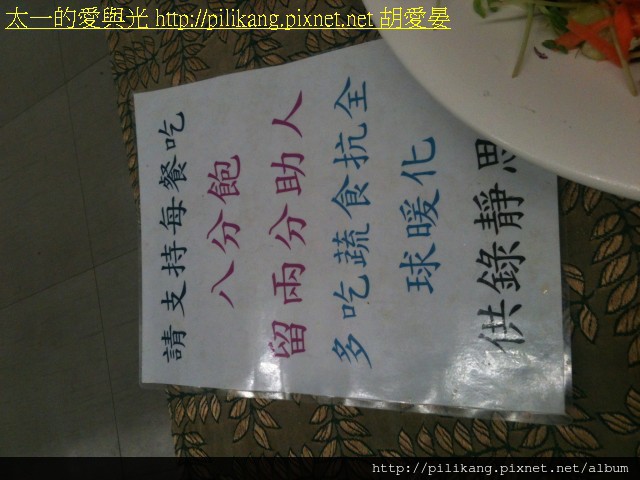 太一的愛與光 http://pilikang.pixnet.net 胡愛晏
請支持每餐吃
八分飽
留兩分助人
多吃蔬食抗全
球暖化
供錄靜思
http://pilikang.pixnet.net/album